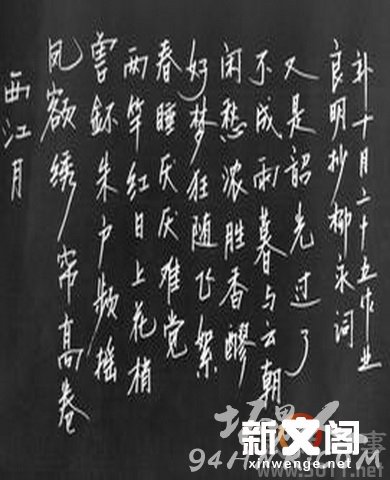 西江月
凤额绣帘高卷
兽钚朱户频摇
两竿红日上花梢
春睡厌厌难觉
好梦狂随飞絮
闲愁浓胜香醪
不成雨暮与云朝
又是韶光过了
良明抄柳永词
补十月二十五作业
新文阁
xinwenge.net